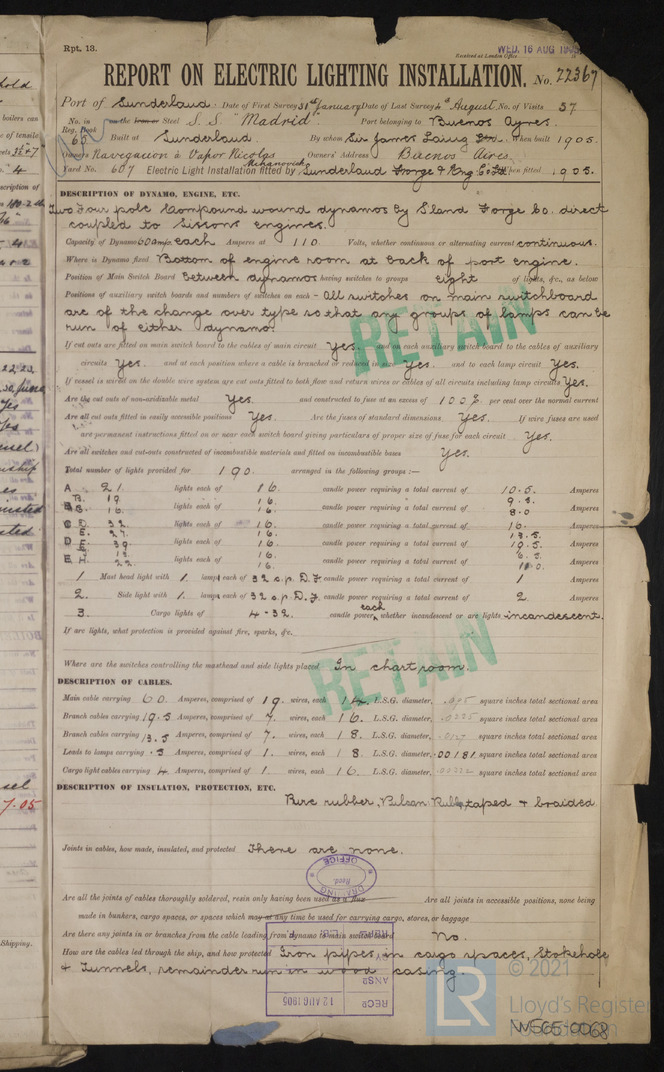 Rpt. 13.
Received at London Office
WED. 16 AUG 1905
REPORT ON ELECTRIC LIGHTING INSTALLATION. No. 22367
Port of Sunderland Date of First Survey 31st January Date of Last Survey 4th August No. of Visits 37
No. in Reg. Book 65 on the Iron or Steel S.S. "Madrid" Port belonging to Buenos Ayres.
Built at Sunderland By whom Sir James Laing When built 1905.
Owners Navegacion à Vapor Nicolas Mihanovich Owners' Address Buenos Aires
Yard No. 607 Electric Light Installation fitted by Sunderland Forge & Eng Co Ld When fitted 1905.
DESCRIPTION OF DYNAMO, ENGINE, ETC.
Two Four pole Compound wound dynamos by S'land Forge Co. direct
coupled to Sissons engines.
Capacity of Dynamo 600 amp each Amperes at 110 Volts, whether continuous or alternating current continuous.
Where is Dynamo fixed Bottom of engine room at back of port engine.
Position of Main Switch Board Between dynamos having switches to groups eight of lights, &c., as below
Positions of auxiliary switch boards and numbers of switches on each - All switches on main switchboard
are of the change over type so that any groups of lamps can be
run of either dynamo.
If cut outs are fitted on main switch board to the cables of main circuit Yes. and on each auxiliary switch board to the cables of auxiliary
circuits Yes. and at each position where a cable is branched or reduced in size Yes. and to each lamp circuit Yes.
If vessel is wired on the double wire system are cut outs fitted to both flow and return wires or cables of all circuits including lamp circuits Yes.
Are the cut outs of non-oxidizable metal Yes. and constructed to fuse at an excess of 100% per cent over the normal current
Are all cut outs fitted in easily accessible positions Yes. Are the fuses of standard dimensions Yes. If wire fuses are used
are permanent instructions fitted on or near each switch board giving particulars of proper size of fuse for each circuit Yes.
Are all switches and cut-outs constructed of incombustible materials and fitted on incombustible bases Yes.
Total number of lights provided for 190. arranged in the following groups :—
A 21. lights each of 16. candle power requiring a total current of 10.5. Amperes
B. 19. 16. 9.5.
16. lights each of 16. candle power requiring a total current of 8.0 Amperes
D. 32. lights each of 16. candle power requiring a total current of 16. Amperes
E. 27. 16. 13.5.
39. lights each of 16. candle power requiring a total current of 19.5. Amperes
13. 16. 6.5.
H. 22. lights each of 16. candle power requiring a total current of 11.0. Amperes
1 Mast head light with 1. lamp each of 32 c.p. D.F. candle power requiring a total current of 1 Amperes
2. Side light with 1. lamp each of 32 c.p. D.F. candle power requiring a total current of 2 Amperes
3. Cargo lights of 4-32 candle power each, whether incandescent or arc lights incandescent.
If arc lights, what protection is provided against fire, sparks, &c.
Where are the switches controlling the masthead and side lights placed In chart room.
DESCRIPTION OF CABLES.
Main cable carrying 60. Amperes, comprised of 19. wires, each 14. L.S.G. diameter, square inches total sectional area
Branch cables carrying 19.5 Amperes, comprised of 7. wires, each 16. L.S.G. diameter, .0225 square inches total sectional area
Branch cables carrying 13.5 Amperes, comprised of 7. wires, each 18. L.S.G. diameter, square inches total sectional area
Leads to lamps carrying .5 Amperes, comprised of 1. wires, each 18. L.S.G. diameter, .00181 square inches total sectional area
Cargo light cables carrying 4 Amperes, comprised of 1. wires, each 16. L.S.G. diameter, .00322 square inches total sectional area
DESCRIPTION OF INSULATION, PROTECTION, ETC.
Pure rubber, Vulcan Rub, taped & braided
Joints in cables, how made, insulated, and protected There are none.
Are all the joints of cables thoroughly soldered, resin only having been used as a flux Are all joints in accessible positions, none being
made in bunkers, cargo spaces, or spaces which may at any time be used for carrying cargo, stores, or baggage
Are there any joints in or branches from the cable leading from dynamo to main switch board No.
How are the cables led through the ship, and how protected Iron pipes, in cargo spaces, Stokehole
& Tunnels, remainder run in wood casing.
RETAIN
RETAIN
DRAWING OFFICE
Recd.
ANSD
RECD 12 AUG 1905
Shipping.
7.05
LR
© 2021
Lloyd's Register
Foundation
W565-0068